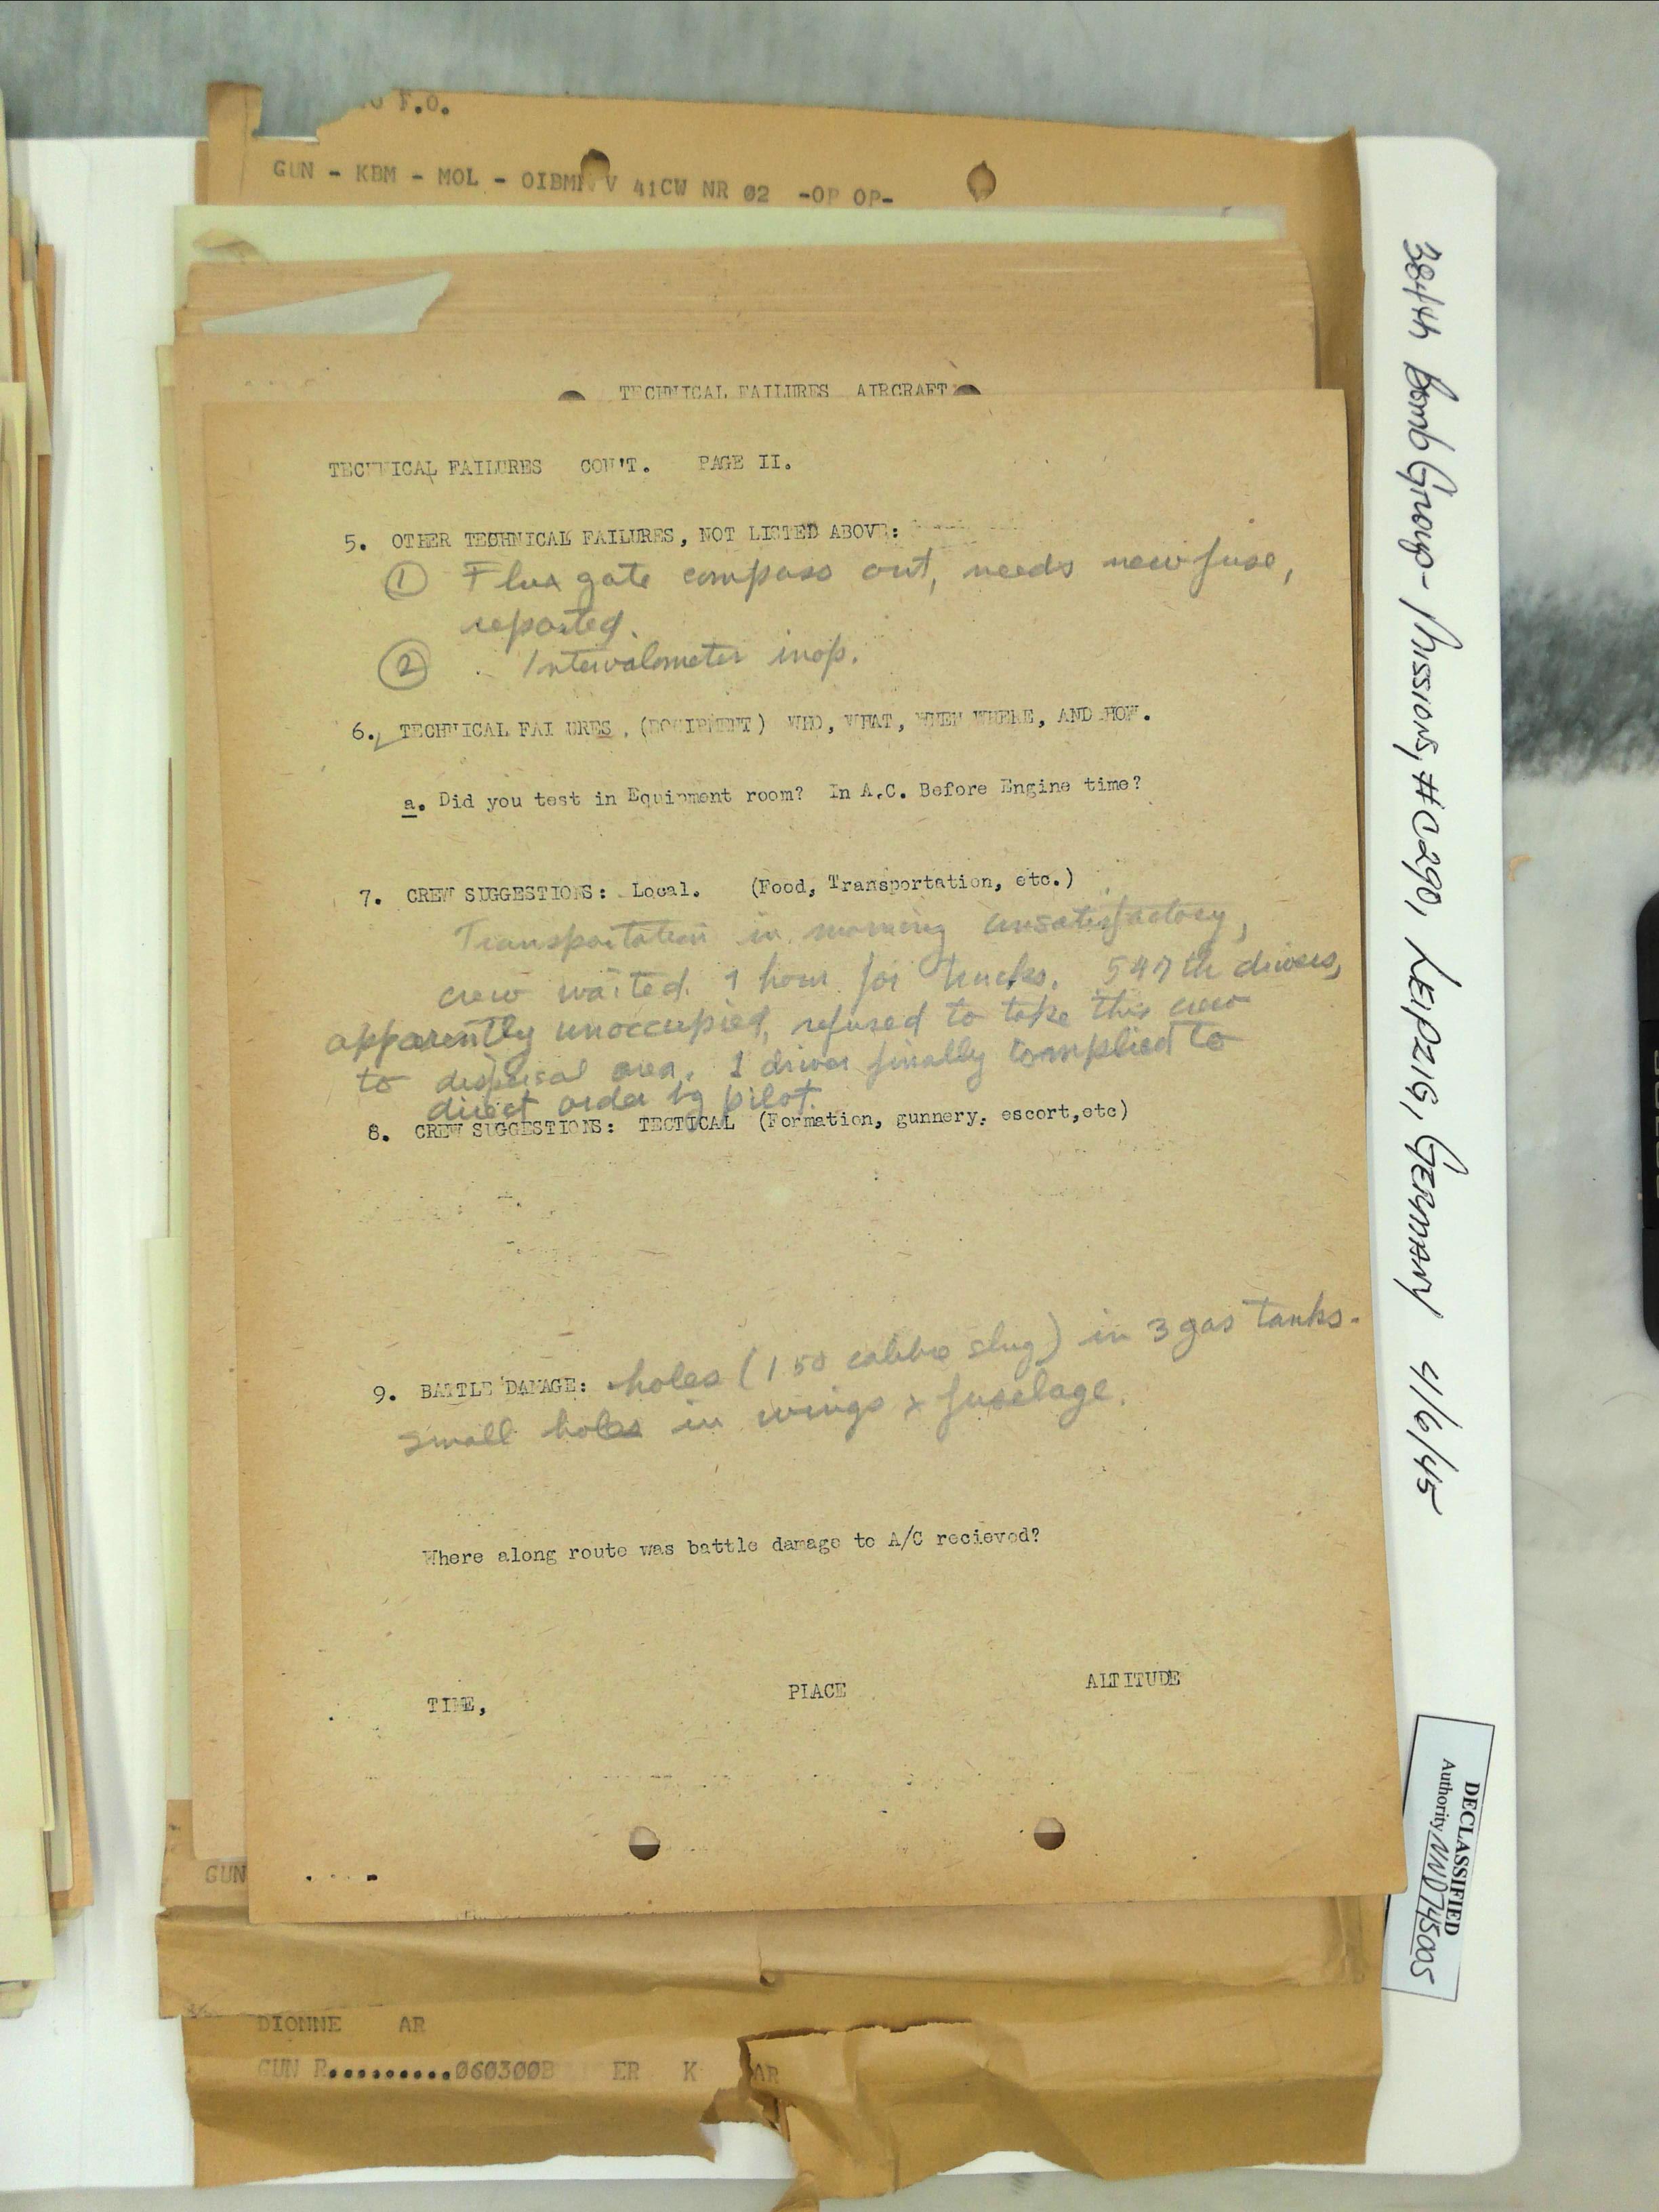 F.O.
GUN - KBM - MOL - OIBMN V 41CW NR 02 -OP OP-
TECHNICAL FAILURES AIRCRAFT
TECHNICAL FAILURES CON'T. PAGE II.
5. OTHER TECHNICAL FAILURES, NOT LISTED ABOVE:
① Flux gate compass out, needs new fuse,
reported.
② Intervalometer inop.
6. TECHNICAL FAILURES, (EQUIPMENT) WHO, WHAT, WHEN WHERE, AND HOW.
a. Did you test in Equipment room? In A.C. Before Engine time?
7. CREW SUGGESTIONS: Local. (Food, Transportation, etc.)
Transportation in morning unsatisfactory,
crew waited 1 hour for trucks. 547th drivers,
apparently unoccupied, refused to take this crew
to dispersal area. 1 driver finally complied to
direct order by pilot.
8. CREW SUGGESTIONS: TECTICAL (Formation, gunnery. escort,etc)
9. BATTLE DAMAGE: holes (1 50 calibre slug) in 3 gas tanks.
small holes in wings & fuselage.
Where along route was battle damage to A/C recieved?
TIME, PLACE ALTITUDE
GUN
DIONNE AR
GUN R.........060300B ER K AR
384th Bomb Group - Missions, #0290, LEIPZIG, GERMANY 4/6/45
DECLASSIFIED
Authority NND745005